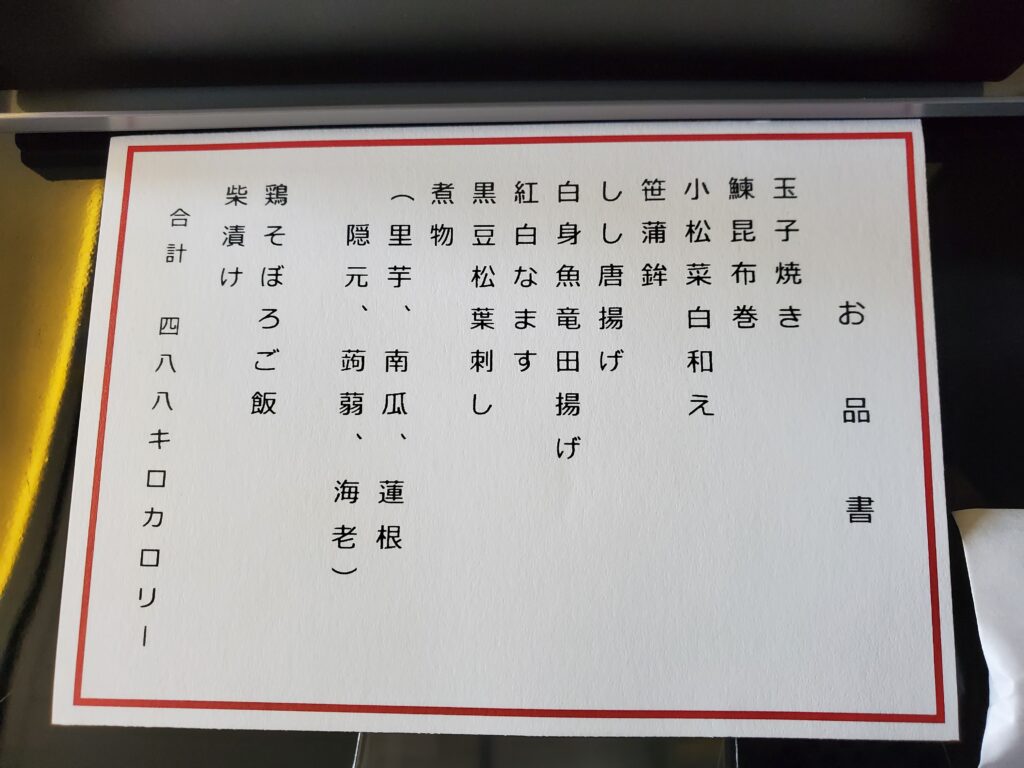 お品書
玉子焼き
鰊昆布巻
小松菜白和え
笹蒲鉾
しし唐揚げ
白身魚竜田揚げ
紅白なます
黒豆松葉刺し
煮物
（里芋、南瓜、蓮根
隠元、蒟蒻、海老）
鶏そぼろご飯
柴漬け
合計 四八八キロカロリー